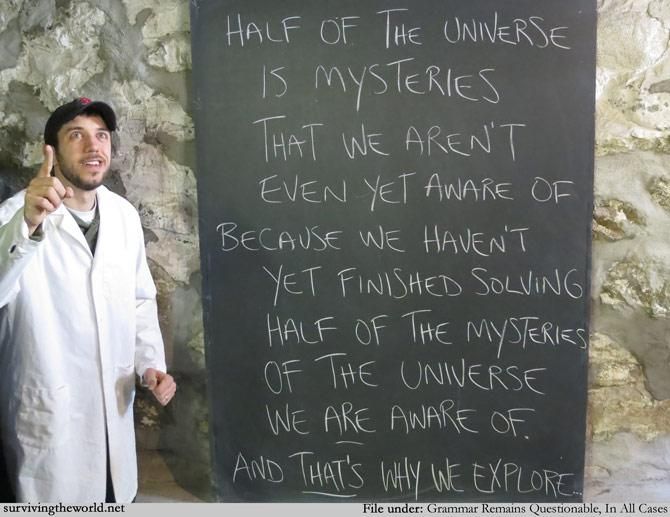 HALF OF THE UNIVERSE
IS MYSTERIES
THAT WE AREN'T
EVEN YET AWARE OF
BECAUSE WE HAVEN'T
YET FINISHED SOLVING
HALF OF THE MYSTERIES
OF THE UNIVERSE
WE ARE AWARE OF.
AND THAT'S WHY WE EXPLORE...
survivingtheworld.net
File under: Grammar Remains Questionable, In All Cases